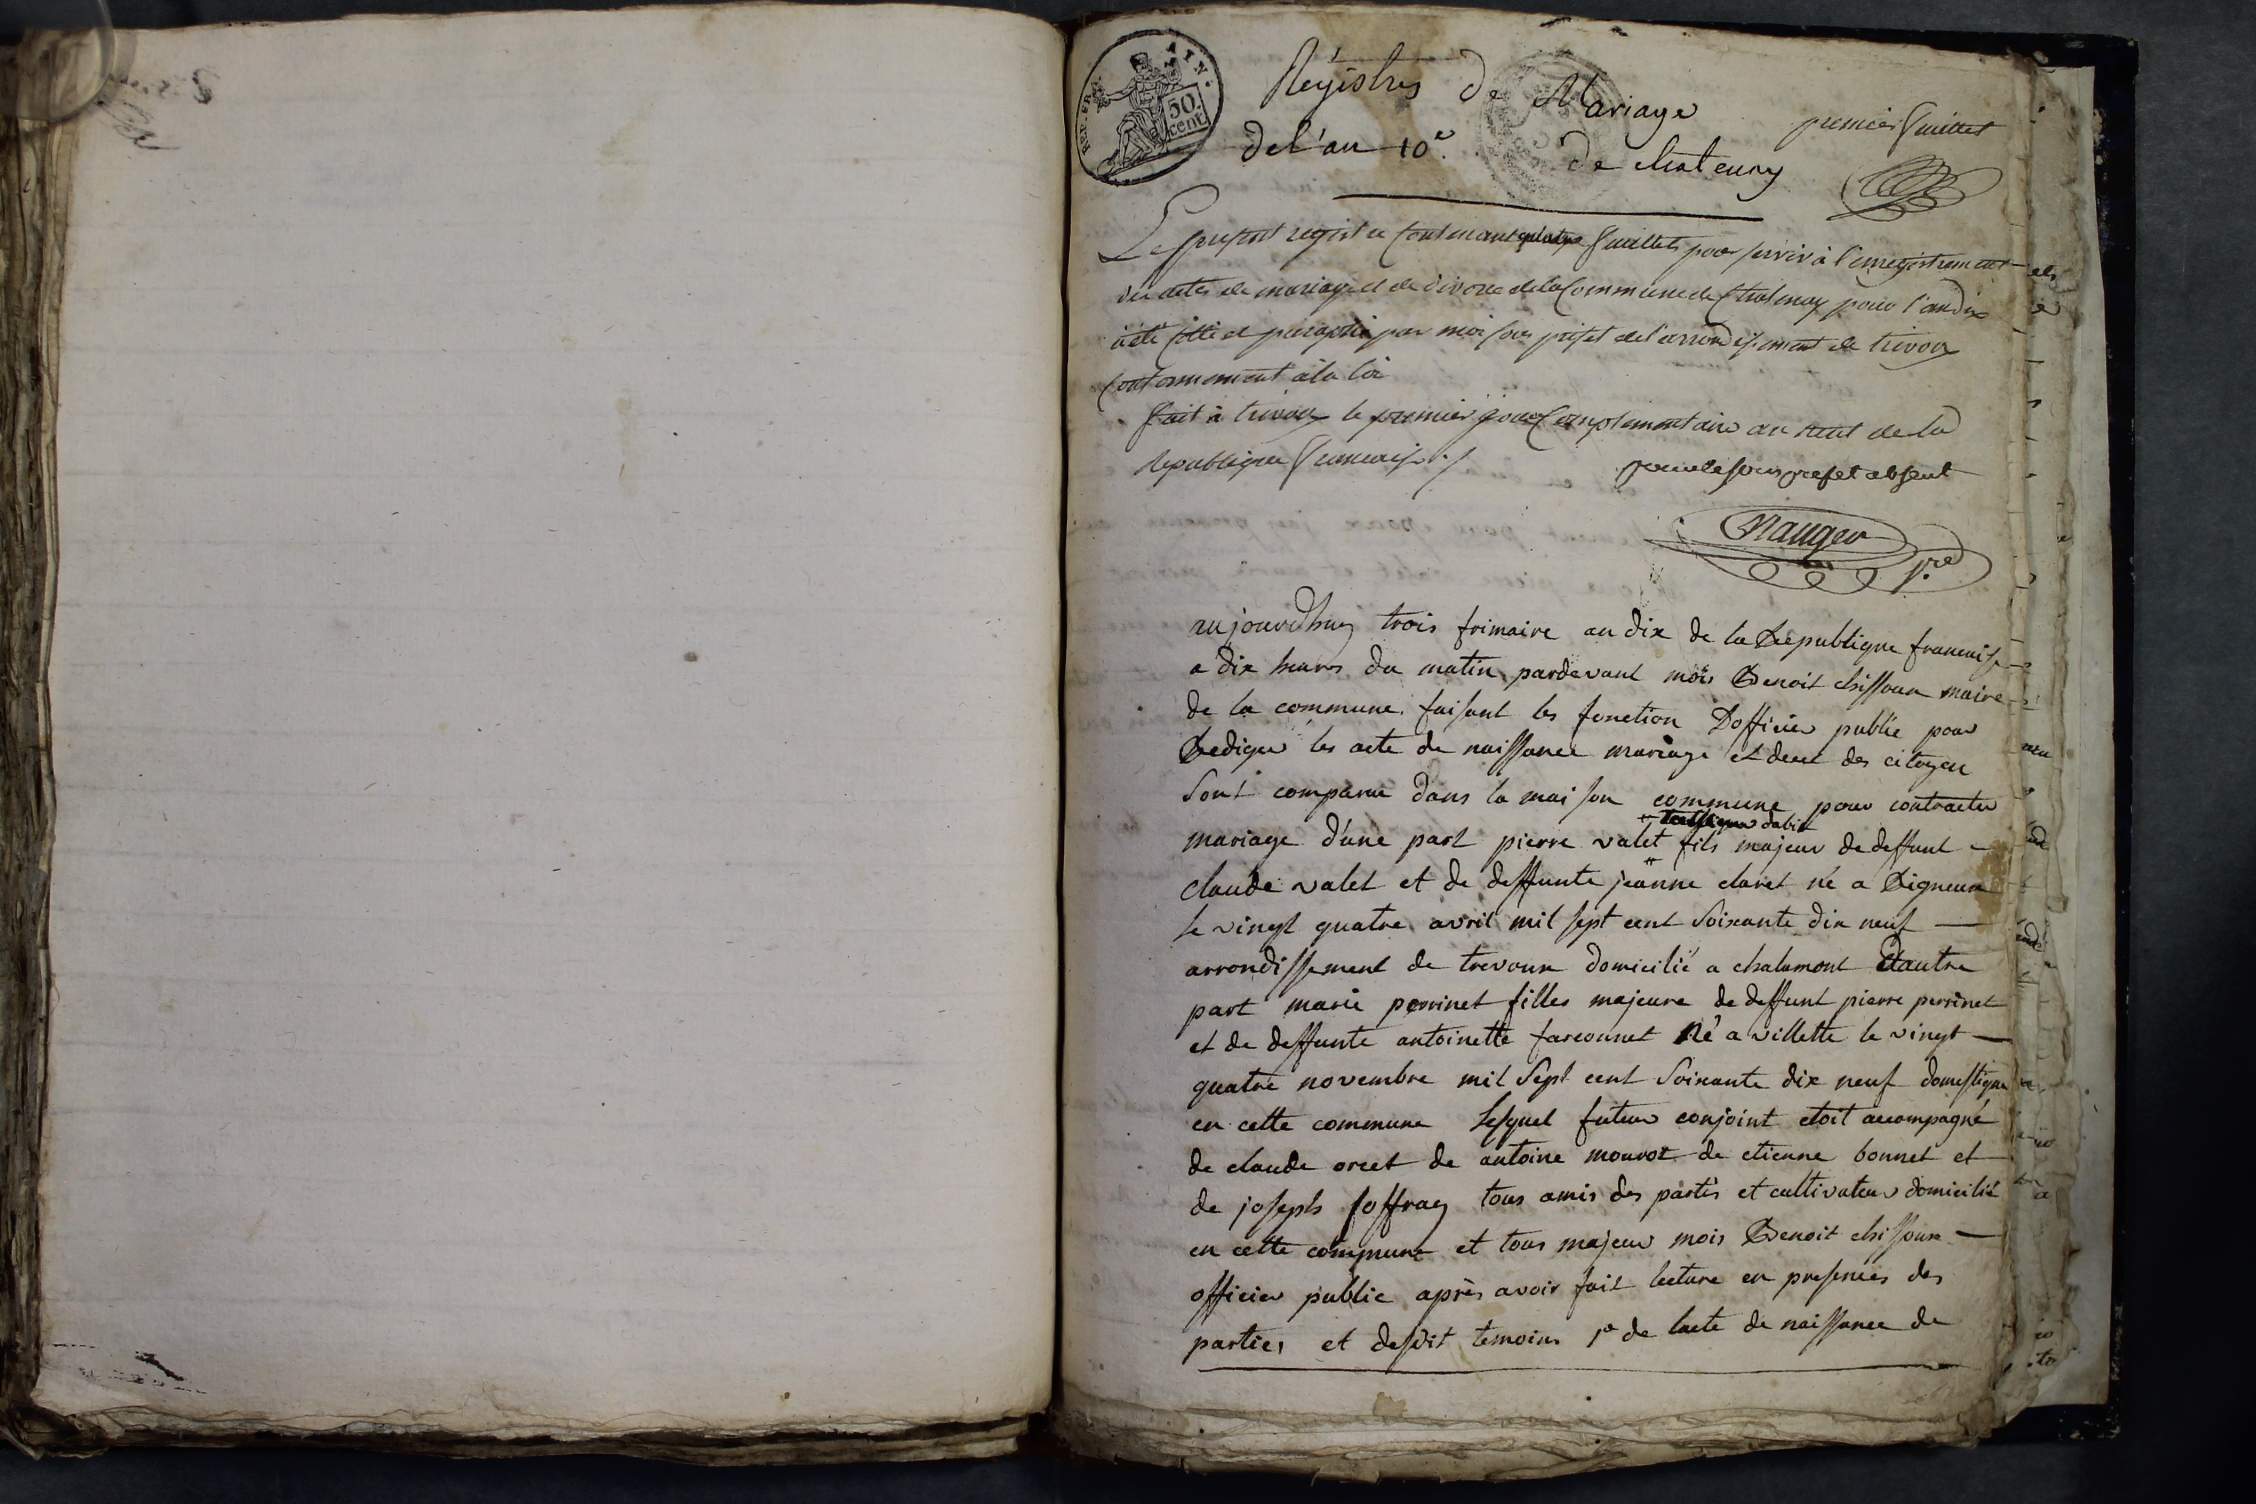 REP. FR.
AIN.
50.
cent.
Régistres de Mariage
premier feuillet
de l'an 10e. de chatenay
Le present registre contenant quatre feuillets pour servir à l'enregistrement
des actes de mariage et de divorce de la Commune de Chatenay pour l'an dix
a été cotté et paraphé par moi sous prefet de l'arrondissement de trevoux
conformement à la loi
fait à trevoux le premier jour complementaire an neuf de la
Republique francaise ./.
pour le sous prefet absent
aujourdhuy trois frimaire an dix de la Republique francaise
a dix heures du matin pardevant mois Benoit chissoux maire
de la commune. faisant les fonction Dofficier public pour
Rediger les acte de naissance mariage et deces des citoyen
Sont comparu dans la maison commune pour contracter
tallieur dabit
mariage d'une part pierre valet fils majeur de deffunt
claude valet et de deffunte jeanne claret né a Rigneux
le vingt quatre avril mil sept cent soixante dix neuf
arrondissement de trevoux domicilié a chalamont Dautre
part marie perrinet filles majeure de deffunt pierre perrinet
et de deffunte antoinette farconnet Né a villette le vingt
quatre novembre mil Sept cent Soixante dix neuf domestique
en cette commune Lesquel futur conjoint etoit accompagné
de claude orset de antoine mourot de etienne bonnet et
de joseph joffray tous amis des partis et cultivateur domicilié
en cette commune et tous majeur mois Benoit chissoux
officier public après avoir fait lecture en presences des
parties et desdit temoins 1e de lacte de naissance de